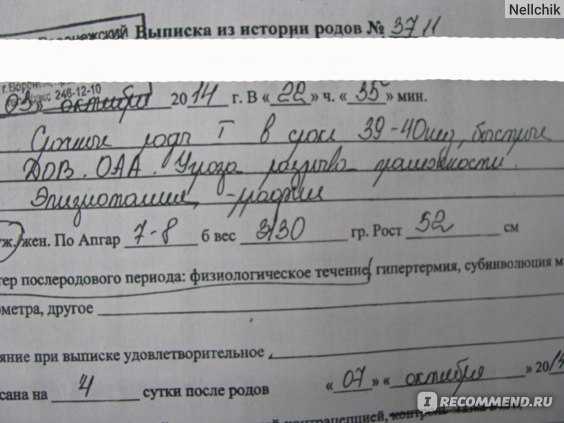 Nellchik
Воронежский
Выписка из истории родов № 3711
г. Ворон
246-12-10
«03» октября 2014 г. В «22» ч. «35» мин.
Срочные роды I в срок 39-40 нед, быстрые
ДОВ. ОАА. Угроза разрыва промежности.
Эпизиотомия, -рафия
ж./жен. По Апгар 7-8 б вес 3130 гр. Рост 52 см
тер послеродового периода: физиологическое течение, гипертермия, субинволюция м
ометра, другое
яние при выписке удовлетворительное
сана на 4 сутки после родов «07» «октября» 201
контрацепцией, контроль
IRECOMMEND.RU